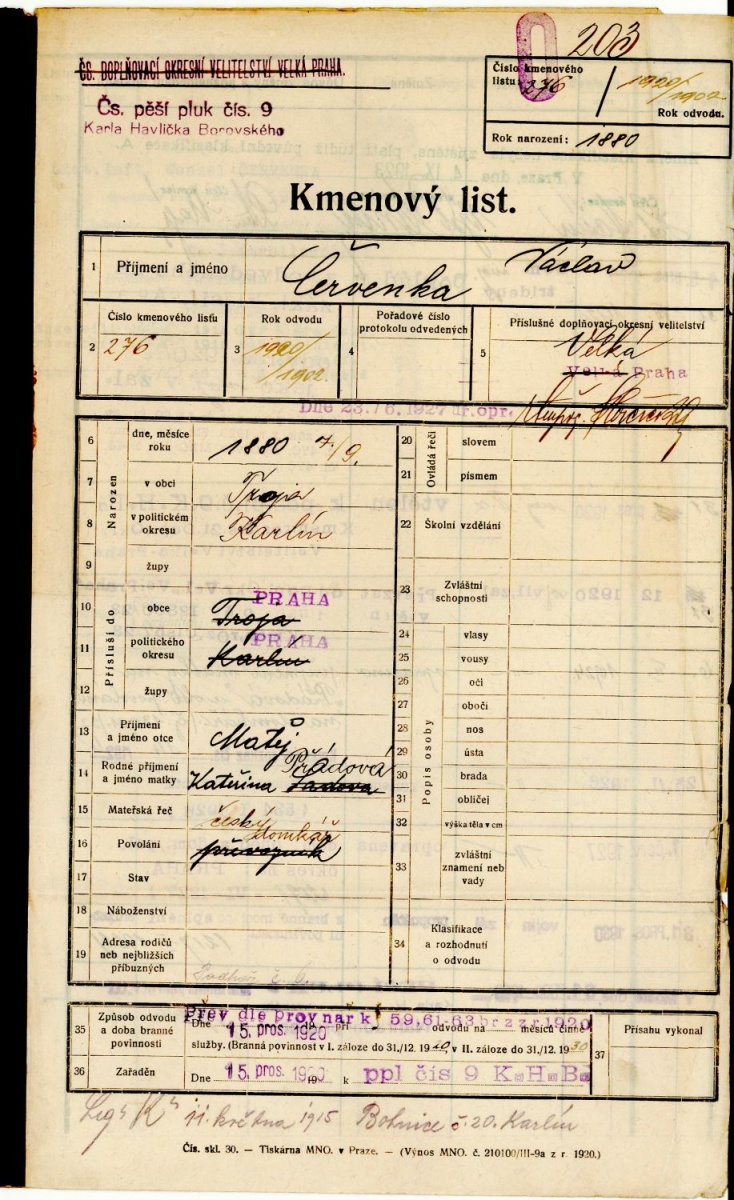 203
ČS. DOPLŇOVACÍ OKRESNÍ VELITELSTVÍ VELKÁ PRAHA.
Čs. pěší pluk čís. 9
Karla Havlíčka Borovského
Číslo kmenového listu 276
1920/1902
Rok odvodu.
Rok narození: 1880
Kmenový list.
1 Příjmení a jméno Červenka Václav
2 Číslo kmenového listu 276
3 Rok odvodu 1920/1902
4 Pořadové číslo protokolu odvedených
5 Příslušné doplňovací okresní velitelství
Velká
Velká Praha
Dne 23./6. 1927 ur. opr.
Narozen
6 dne, měsíce roku 1880 7/9.
7 v obci Troja
8 v politickém okresu Karlín
9 župy
Přísluší do
10 obce Troja PRAHA
11 politického okresu Karlín PRAHA
12 župy
13 Příjmení a jméno otce Matěj
14 Rodné příjmení a jméno matky Kateřina Přádová
15 Mateřská řeč český
16 Povolání domkář
převozník
17 Stav
18 Náboženství
19 Adresa rodičů neb nejbližších příbuzných
Ovládá řeči
20 slovem
21 písmem
22 Školní vzdělání
23 Zvláštní schopnosti
Popis osoby
24 vlasy
25 vousy
26 oči
27 obočí
28 nos
29 ústa
30 brada
31 obličej
32 výška těla v cm
33 zvláštní znamení neb vady
34 Klasifikace a rozhodnutí o odvodu
35 Způsob odvodu a doba branné povinnosti
Přev dle prov nar k § 59.61-63 br z z r 1920
Dne 15. pros. 1920 při odvodu na měsíců činné
služby. (Branná povinnost v I. záloze do 31./12. 1920, v II. záloze do 31./12. 1930
36 Zařaděn Dne 15. pros. 1920 k ppl čís 9 K.H.B.
37 Přísahu vykonal
11. května 1915 Bohnice č. 20. Karlín
Čís. skl. 30. — Tiskárna MNO. v Praze. — (Výnos MNO. č. 210100/III-9a z r. 1920.)